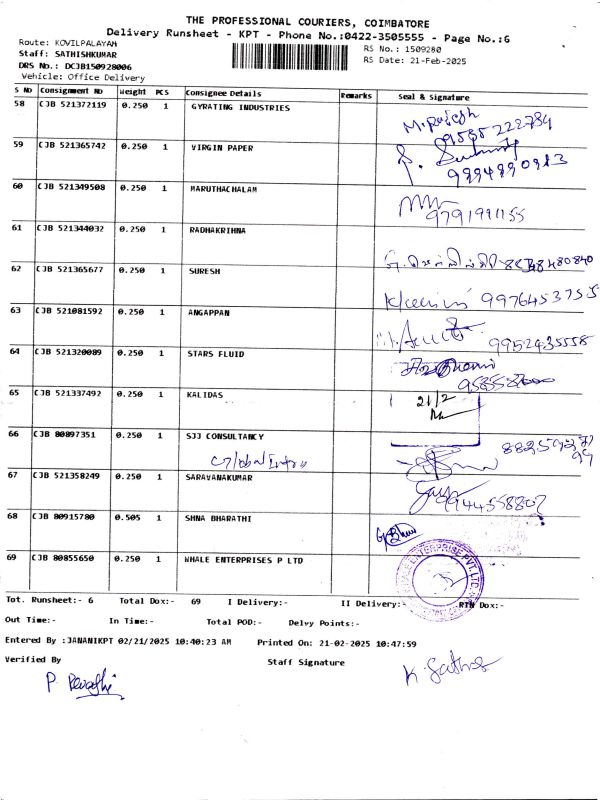 THE PROFESSIONAL COURIERS, COIMBATORE
Delivery Runsheet - KPT - Phone No.:0422-3505555 - Page No.:6
Route: KOVILPALAYAM
RS No.: 1509280
Staff: SATHISHKUMAR
RS Date: 21-Feb-2025
DRS No.: DCJB150928006
Vehicle: Office Delivery
S No Consignment No Weight PCS Consignee Details Remarks Seal & Signature
58 CJB 521372119 0.250 1 GYRATING INDUSTRIES
59 CJB 521365742 0.250 1 VIRGIN PAPER
9894890913
60 CJB 521349508 0.250 1 MARUTHACHALAM
9791191155
61 CJB 521344032 0.250 1 RADHAKRIHNA
62 CJB 521365677 0.250 1 SURESH
9976453755
63 CJB 521081592 0.250 1 ANGAPPAN
9952435558
64 CJB 521320089 0.250 1 STARS FLUID
65 CJB 521337492 0.250 1 KALIDAS
21/2
66 CJB 80897351 0.250 1 SJJ CONSULTANCY
Global
67 CJB 521358249 0.250 1 SARAVANAKUMAR
9944558807
68 CJB 80915780 0.505 1 SHNA BHARATHI
69 CJB 80855650 0.250 1 WHALE ENTERPRISES P LTD
WHALE ENTERPRISE PVT. LTD
Tot. Runsheet:- 6 Total Dox:- 69 I Delivery:- II Delivery:- RTN Dox:-
Out Time:- In Time:- Total POD:- Delvy Points:-
Entered By :JANANIKPT 02/21/2025 10:40:23 AM Printed On: 21-02-2025 10:47:59
Verified By Staff Signature
P. Revathi